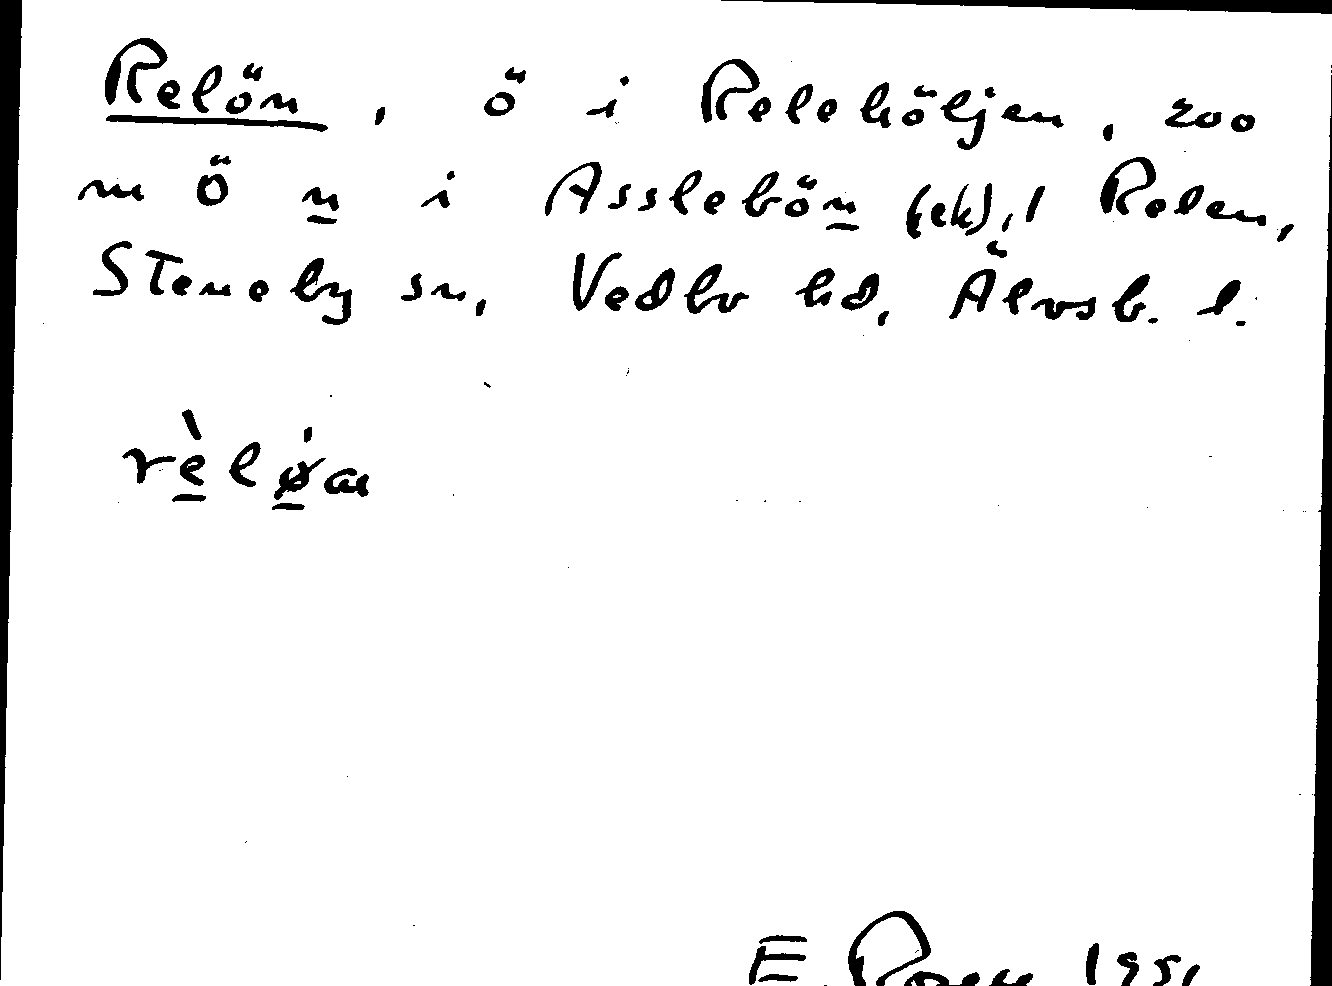 Relön, ö i Relehöljen, 200
m Ö n i Asslebön (ek), i Relen,
Steneby sn, Vedbo hd, Älvsb. l.
rèløn
E. Rosen 1951